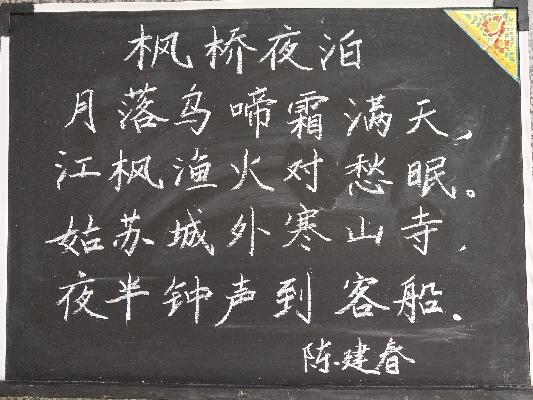 枫桥夜泊
月落乌啼霜满天,
江枫渔火对愁眠。
姑苏城外寒山寺,
夜半钟声到客船.
陈建春